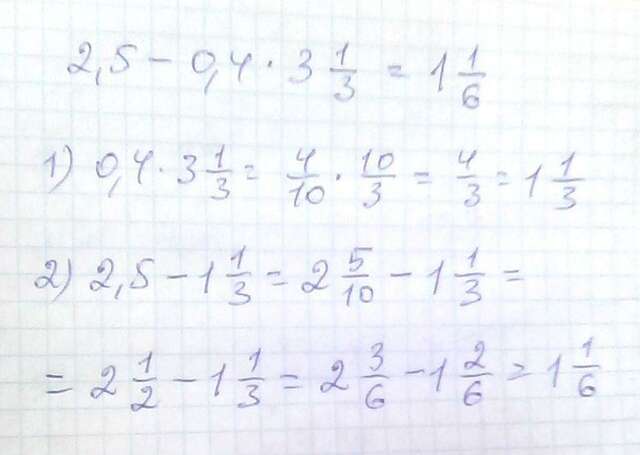 2,5 − 0,4 · 3 1/3 = 1 1/6
1) 0,4 · 3 1/3 = 4/10 · 10/3 = 4/3 = 1 1/3
2) 2,5 − 1 1/3 = 2 5/10 − 1 1/3 =
= 2 1/2 − 1 1/3 = 2 3/6 − 1 2/6 = 1 1/6